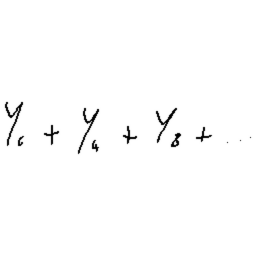 Y₆ + Y₄ + Y₈ + ...